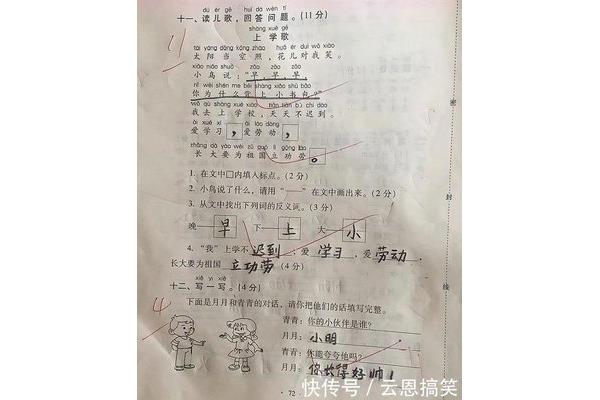 dú ér gē huí dá wèn tí
十一、读儿歌，回答问题。(11分)
11
shàng xué gē
上学歌
tài yáng dāng kōng zhào huā ér duì wǒ xiào
太阳当空照，花儿对我笑。
xiǎo niǎo shuō zǎo zǎo zǎo
小鸟说："早，早，早，
nǐ wèi shén me bēi shàng xiǎo shū bāo
你为什么背上小书包？"
wǒ qù shàng xué xiào tiān tiān bù chí dào
我去上学校，天天不迟到。
ài xué xí ài láo dòng
爱学习，爱劳动，
zhǎng dà yào wèi zǔ guó lì gōng láo
长大要为祖国立功劳。
1. 在文中□内填入标点。(2分)
2. 小鸟说了什么，请用"——"在文中画出来。(2分)
3. 从文中找出下列词的反义词。(3分)
晚—早 下—上 大—小
4. "我"上学不迟到，爱学习，爱劳动，
长大要为祖国立功劳(4分)
xiě yi xiě
十二、写一写。(4分)
4
下面是月月和青青的对话，请你把他们的话填写完整。
青青：你的小伙伴是谁？
月月：小明
青青：你能夸夸他吗？
月月：你长得好帅！
·72·
密
封
线
快传号／云恩搞笑